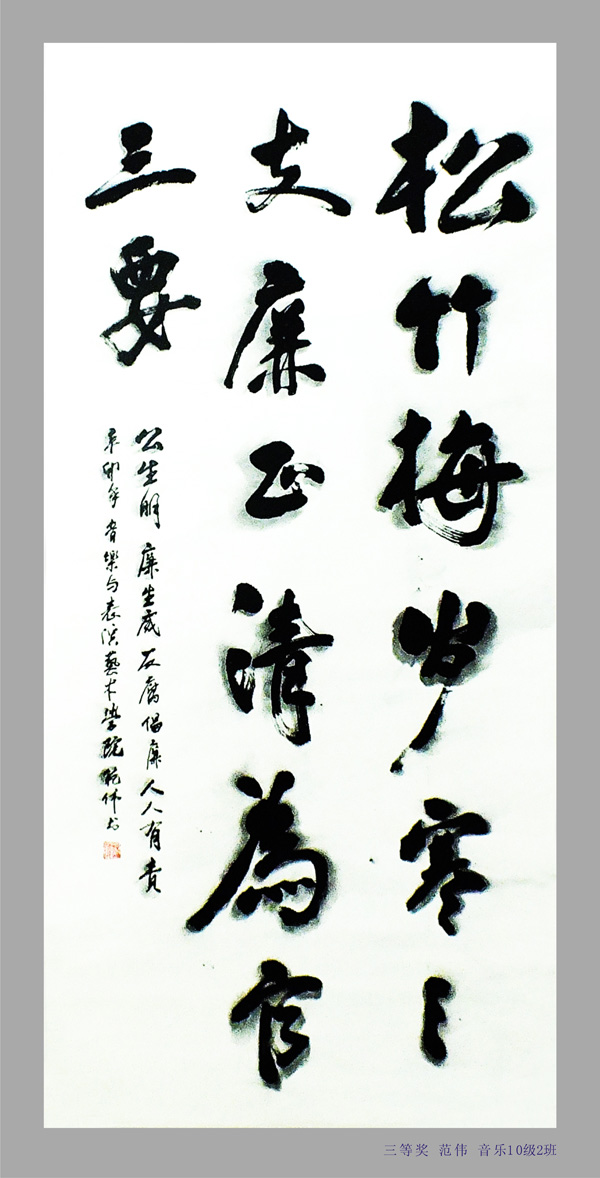 松竹梅岁寒三
友廉正清為官
三要
公生明廉生威反腐倡廉人人有责
辛卯年音樂与表演藝术學院范伟书
三等奖 范伟 音乐10级2班